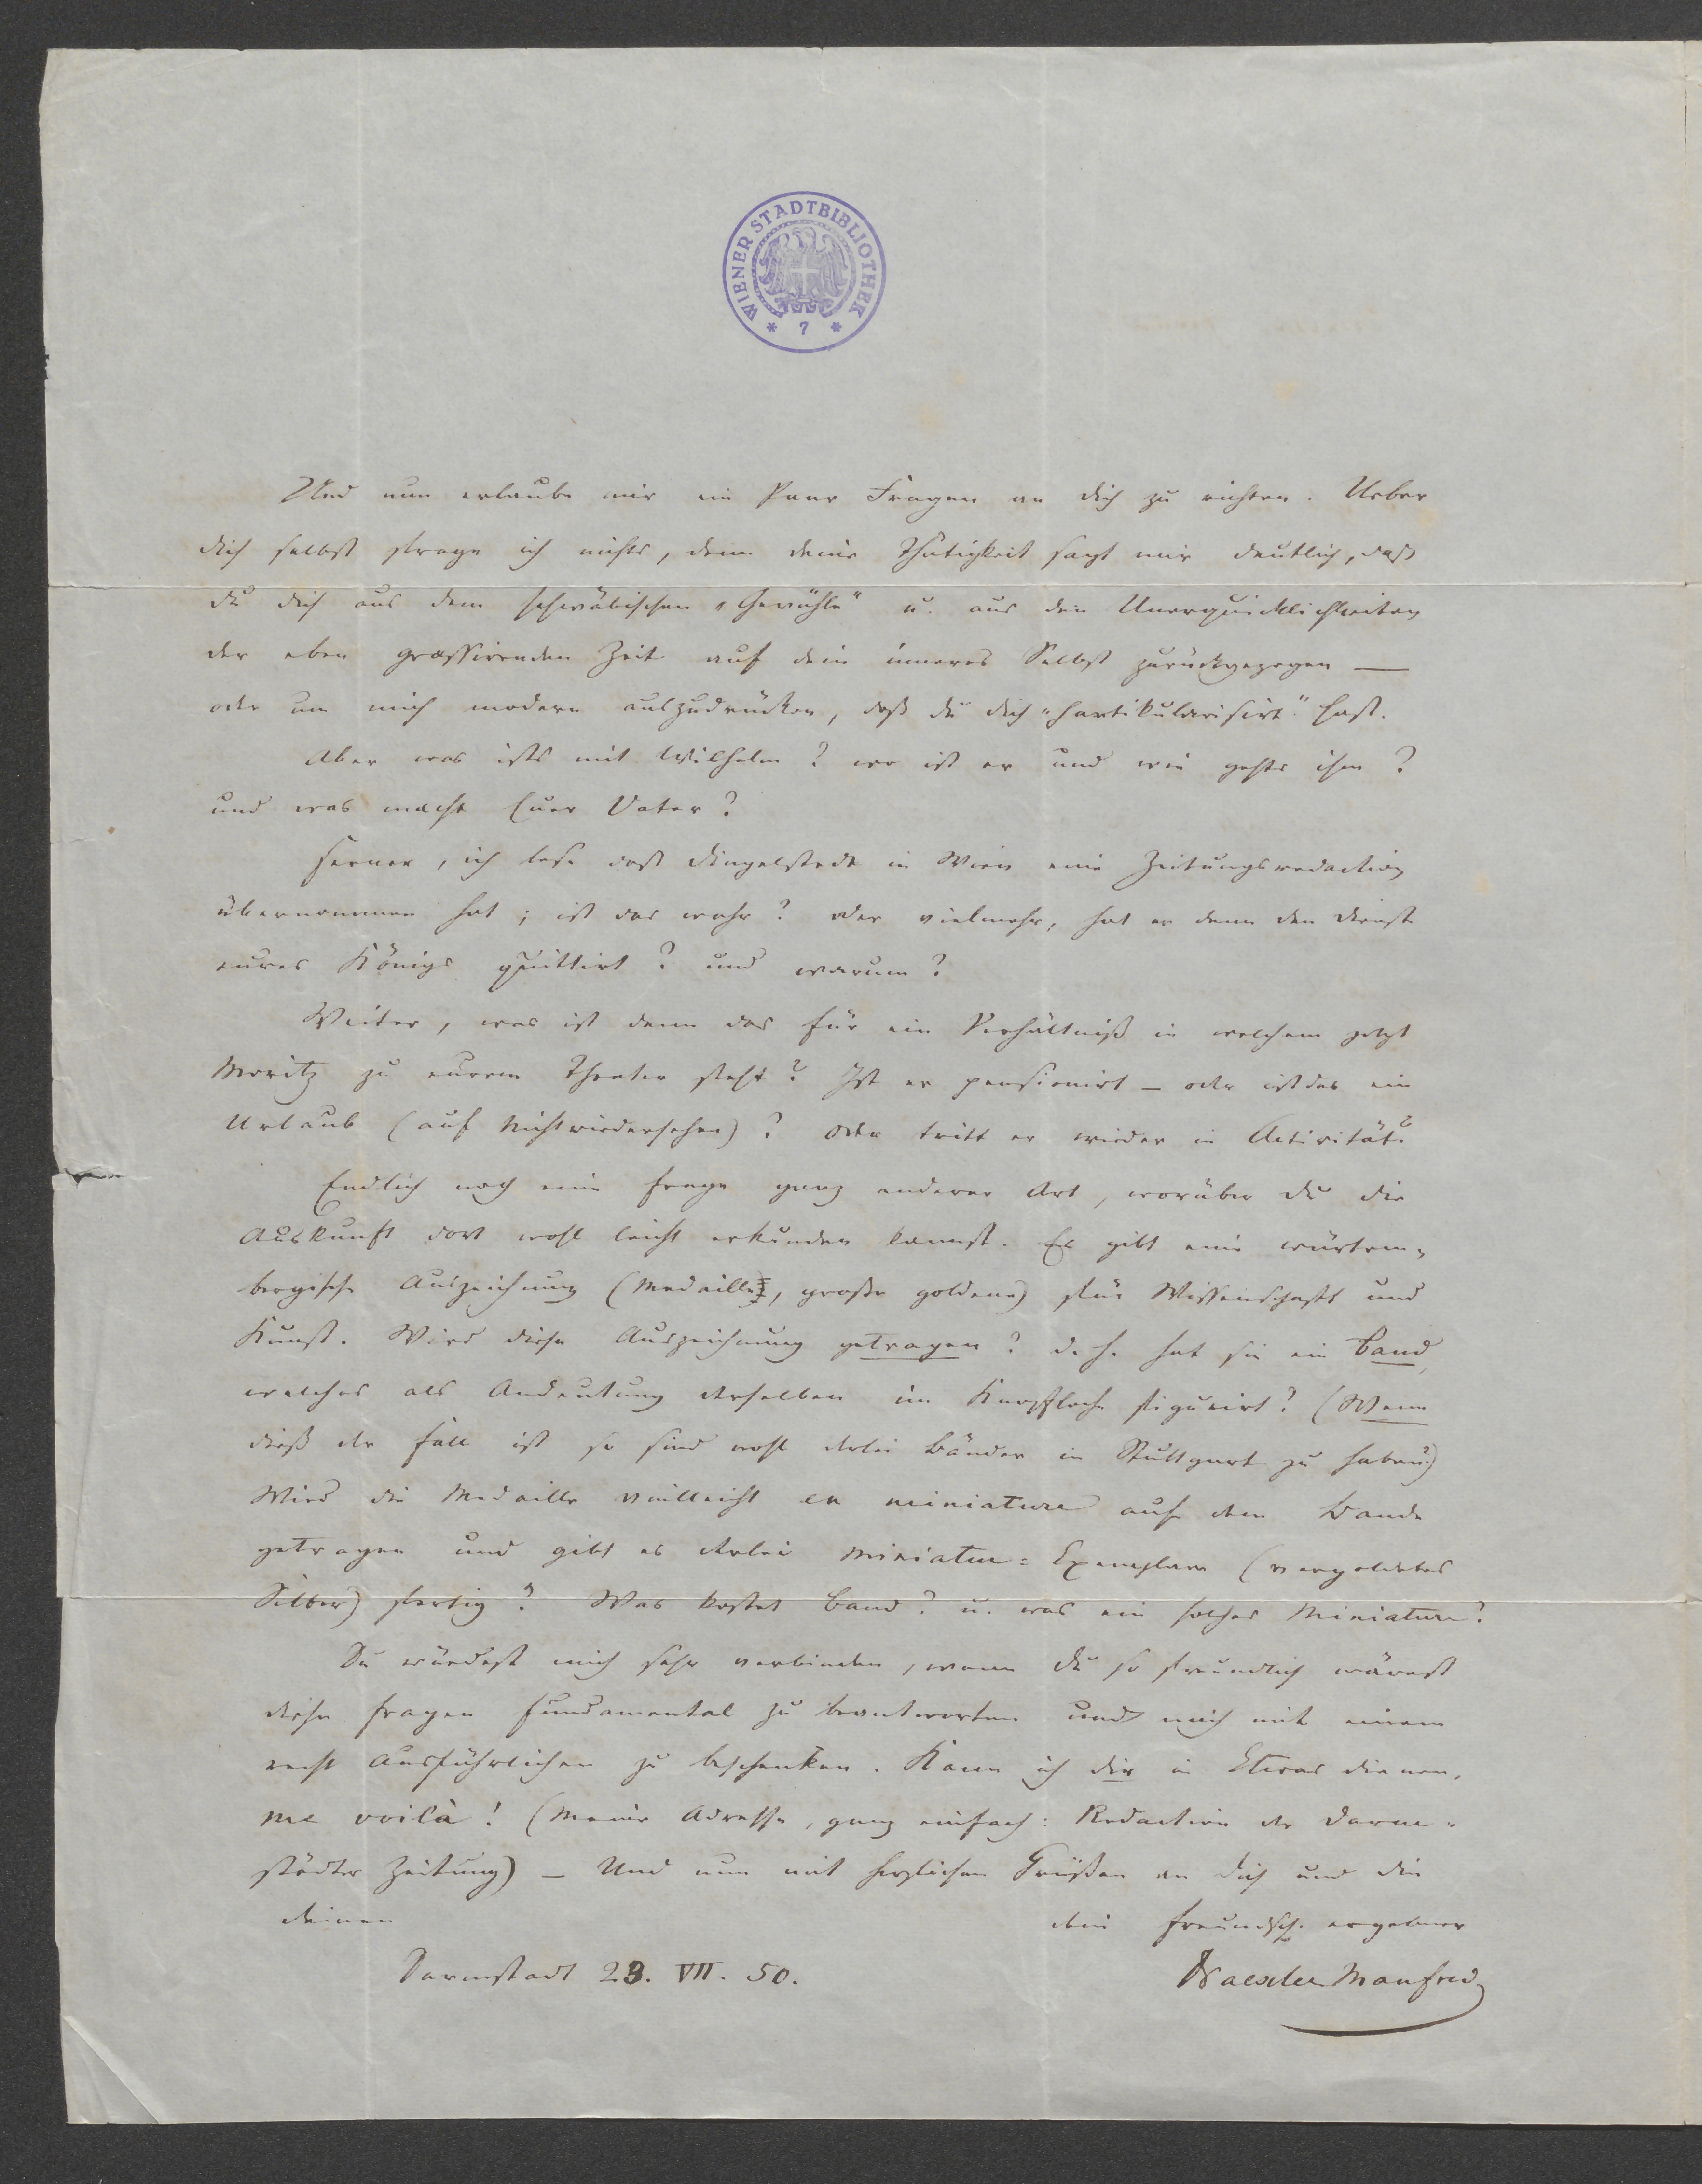 WIENER STADTBIBLIOTHEK
* 7 *
Und nun erlaube mir ein Paar Fragen an dich zu richten. Ueber
dich selbst frage ich nichts, denn deine Thätigkeit sagt mir deutlich, daß
du dich aus dem schwäbischen „Gewühle“ u. aus den Unerquicklichkeiten
der eben grassirenden Zeit auf dein inneres Selbst zurückgezogen —
oder um mich modern auszudrücken, daß du dich „partikularisirt“ hast.
Aber was ists mit Wilhelm? wo ist er und wie gehts ihm?
und was macht Euer Vater?
Ferner, ich lese daß Dingelstedt in Wien eine Zeitungsredaction
übernommen hat; ist das wahr? oder vielmehr, hat er denn den Dienst
eures Königs quittirt? und warum?
Weiter, was ist denn das für ein Verhältniß in welchem jetzt
Moritz zu eurem Theater steht? Ist er pensionirt – oder ist das ein
Urlaub (auf Nichtwiedersehen)? oder tritt er wieder in Activität?
Endlich noch eine Frage ganz anderer Art, worüber du die
Auskunft dort wohl leicht erkunden kannst. Es gibt eine würtem-
bergische Auszeichnung (Medaille, große goldene) für Wissenschaft und
Kunst. Wird diese Auszeichnung getragen? d. h. hat sie ein Band,
welches als Andeutung derselben im Knopfloche figurirt? (Wenn
dieß der Fall ist so sind wohl derlei Bänder in Stuttgart zu haben?)
Wird die Medaille vielleicht en miniature auf dem Bande
getragen und gibt es derlei Miniatur=Exemplare (vergoldetes
Silber) fertig? Was kostet Band? u. was ein solches Miniature?
Du würdest mich sehr verbinden, wenn du so freundlich wärest
diese Fragen fundamental zu beantworten und mich mit einem
recht Ausführlichen zu beschenken. Kann ich dir in Etwas dienen,
me voilà! (Meine Adresse, ganz einfach: Redaction der Darm-
städter Zeitung) – Und nun mit herzlichen Grüßen an dich und die
deinen
dein freundsch. ergebener
Darmstadt 23. VII. 50.
Draexler Manfred